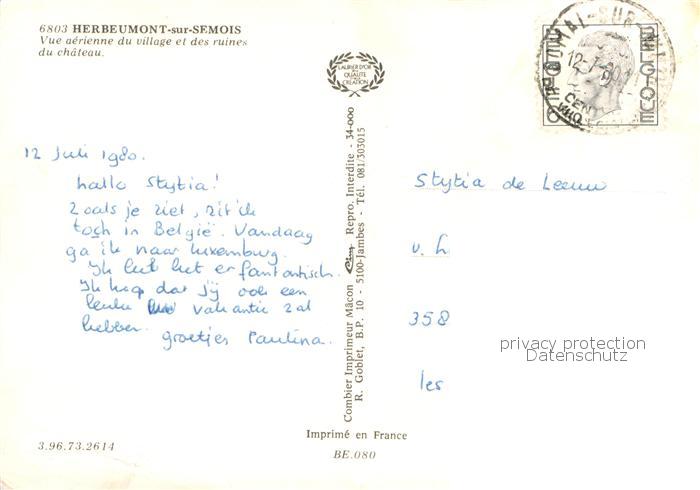 6803 HERBEUMONT-sur-SEMOIS
Vue aérienne du village et des ruines
du château.
LAURIER D'OR
QUALITÉ
CRÉATION
BELGIQUE
BELGIË
12-7-80
12 Juli 1980.
hallo Stytia!
Zoals je ziet, zit ik
toch in België. Vandaag
ga ik naar Luxemburg.
Ik het er fantastisch.
Ik hoop dat jij ook een
leuke vakantie zal
hebben.
groetjes Paulina.
Stytia de Leeuw
v. h
358
les
privacy protection
Datenschutz
Combier Imprimeur Mâcon Cim Repro. Interdite - 34-000
R. Goblet, B.P. 10 - 5100-Jambes - Tél. 081/303015
Imprimé en France
3.96.73.2614
BE.080